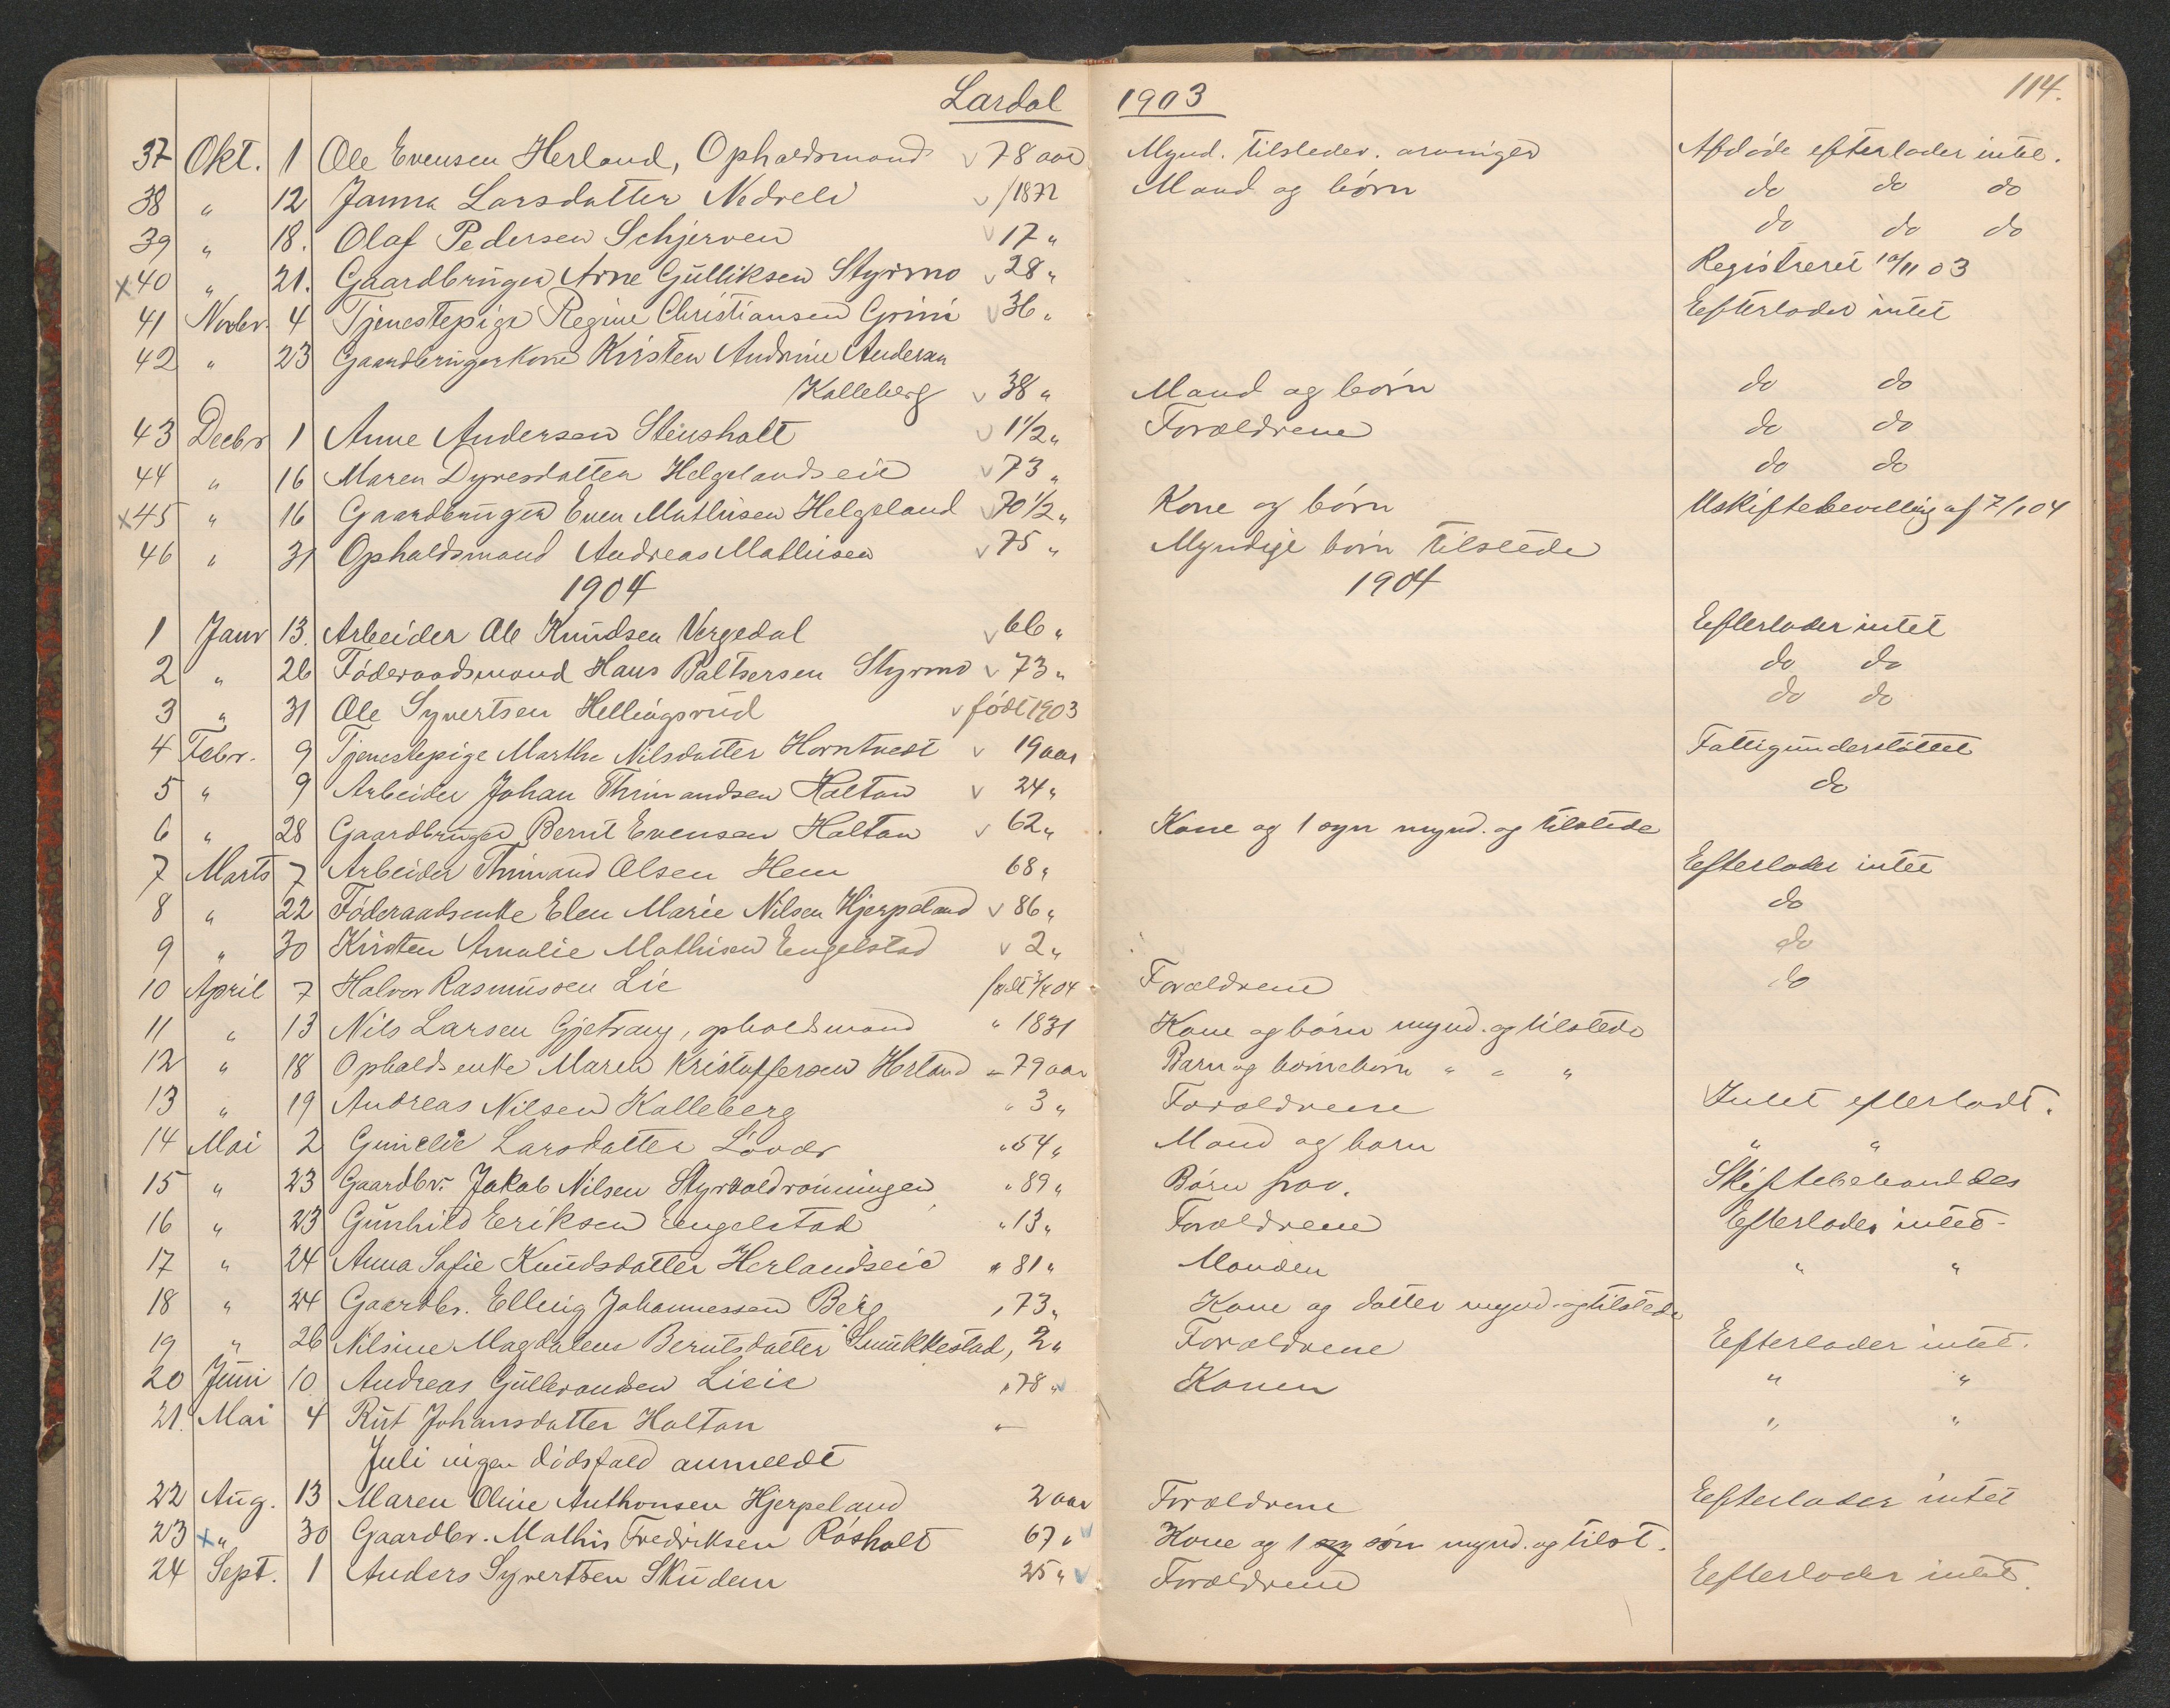 Lardal 1903 114.
37 Okt. 1 Ole Evensen Herland, Opholdsmand 78 aar Mynd. tilsteder. arvinger Afdøde efterlader intet.
38 " 12 Janna Larsdatter Nedreli /1872 Mand og børn do do do
39 " 18. Olaf Pedersen Schjerven 17 " do do do
x40 " 21. Gaardbruger Arne Gulliksen Styrmo 28 " Registreret 10/11 03
41 Novbr. 4 Tjenestepige Regine Christiansen Grini 36 " Efterlader intet
42 " 23 Gaardbrugerkone Kirsten Andrine Andersen
Kalleberg 38 " Mand og børn do do
43 Decbr 1 Anne Andersen Stensholt 1 1/2 " Forældrene do do
44 " 16 Maren Dyresdatter Helgelandseie 73 " do do
x45 " 16 Gaardbruger Even Mathisen Helgeland 70 1/2 " Kone og børn Uskiftebevilling af 7/1 04
46 " 31 Opholdsmand Andreas Mathisen 75 " Myndige børn tilstede
1904 1904
1 Janr 13. Arbeider Ole Knudsen Vergedal 66 " Efterlader intet
2 " 26 Føderaadsmand Hans Baltsersen Styrmo 73 " do do
3 " 31 Ole Syvertsen Hellingsrud født 1903 do do
4 Febr. 9 Tjenestepige Marthe Nilsdatter Horntvedt 19 aar Fattigunderstøttet
5 " 9 Arbeider Johan Thrinandsen Haltan 24 " do
6 " 28 Gaardbruger Bernt Evensen Holtan 62 " Kone og 1 syn mynd. og tilstede
7 Marts 7 Arbeider Thrinand Olsen Hem 68 " Efterlader intet
8 " 22 Føderaadsenke Elen Marie Nilsen Hjerpeland 86 " do
9 " 30 Kirsten Amalie Mathisen Engelstad 2 " do
10 April 7 Halvor Rasmussen Lie født 3/4 04 Forældrene do
11 " 13 Nils Larsen Gjetrang, opholdsmand " 1831 Kone og børn mynd. og tilstede
12 " 18 Opholdsenke Maren Kristoffersen Herland - 79 aar Barn og børnebørn " " "
13 " 19 Andreas Nilsen Kalleberg " 3 " Forældrene Intet efterladt.
14 Mai 2 Larsdatter " 54 " Mand og barn " "
15 " 23 Gaardbr. Jakob Nilsen Styrvoldrønningen " 89 " Børn Skiftebehandles
16 " 23 Gunhild Eriksen Engelstad " 13 " Forældrene Efterlader intet -
17 " 24 Anna Sofie Knudsdatter Herlandseie " 81 " Manden " "
18 " 24 Gaardbr. Elling Johannessen Berg , 73 " Kone og datter mynd. og tilstede
19 " 26 Nilsine Magdalene Berntsdatter Smukkestad, 2 " Forældrene Efterlader intet.
20 Juni 10 Andreas Gulbrandsen Lieie , 78 " Konen " "
21. Mai 4 Rut Johansdatter Holtan " " "
Juli ingen dødsfald anmeldt
22 Aug. 13 Maren Oline Anthonsen Hjerpeland 2 aar Forældrene Efterlader intet
23 x " 30 Gaardbr. Mathis Fredriksen Røsholt 67 " Kone og 1 sy søn mynd. og tilst.
24 Sept. 1 Anders Syvertsen Skudem 25 " Forældrene Efterlader intet.